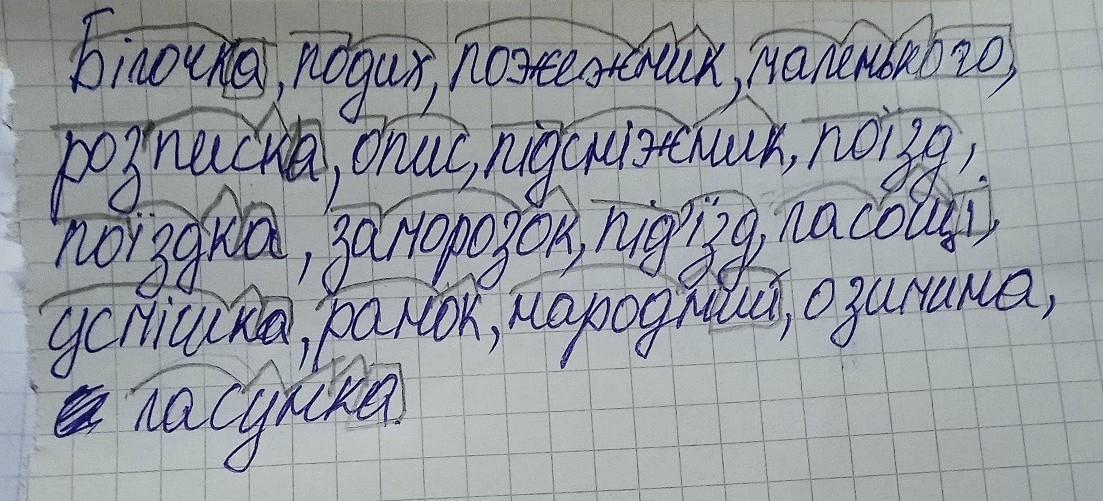 Білочка, подих, пожежник, маленького,
розписка, опис, підсніжник, поїзд,
поїздка, заморозок, під'їзд, ласощі,
усмішка, ранок, народний, озимина,
ласунка.